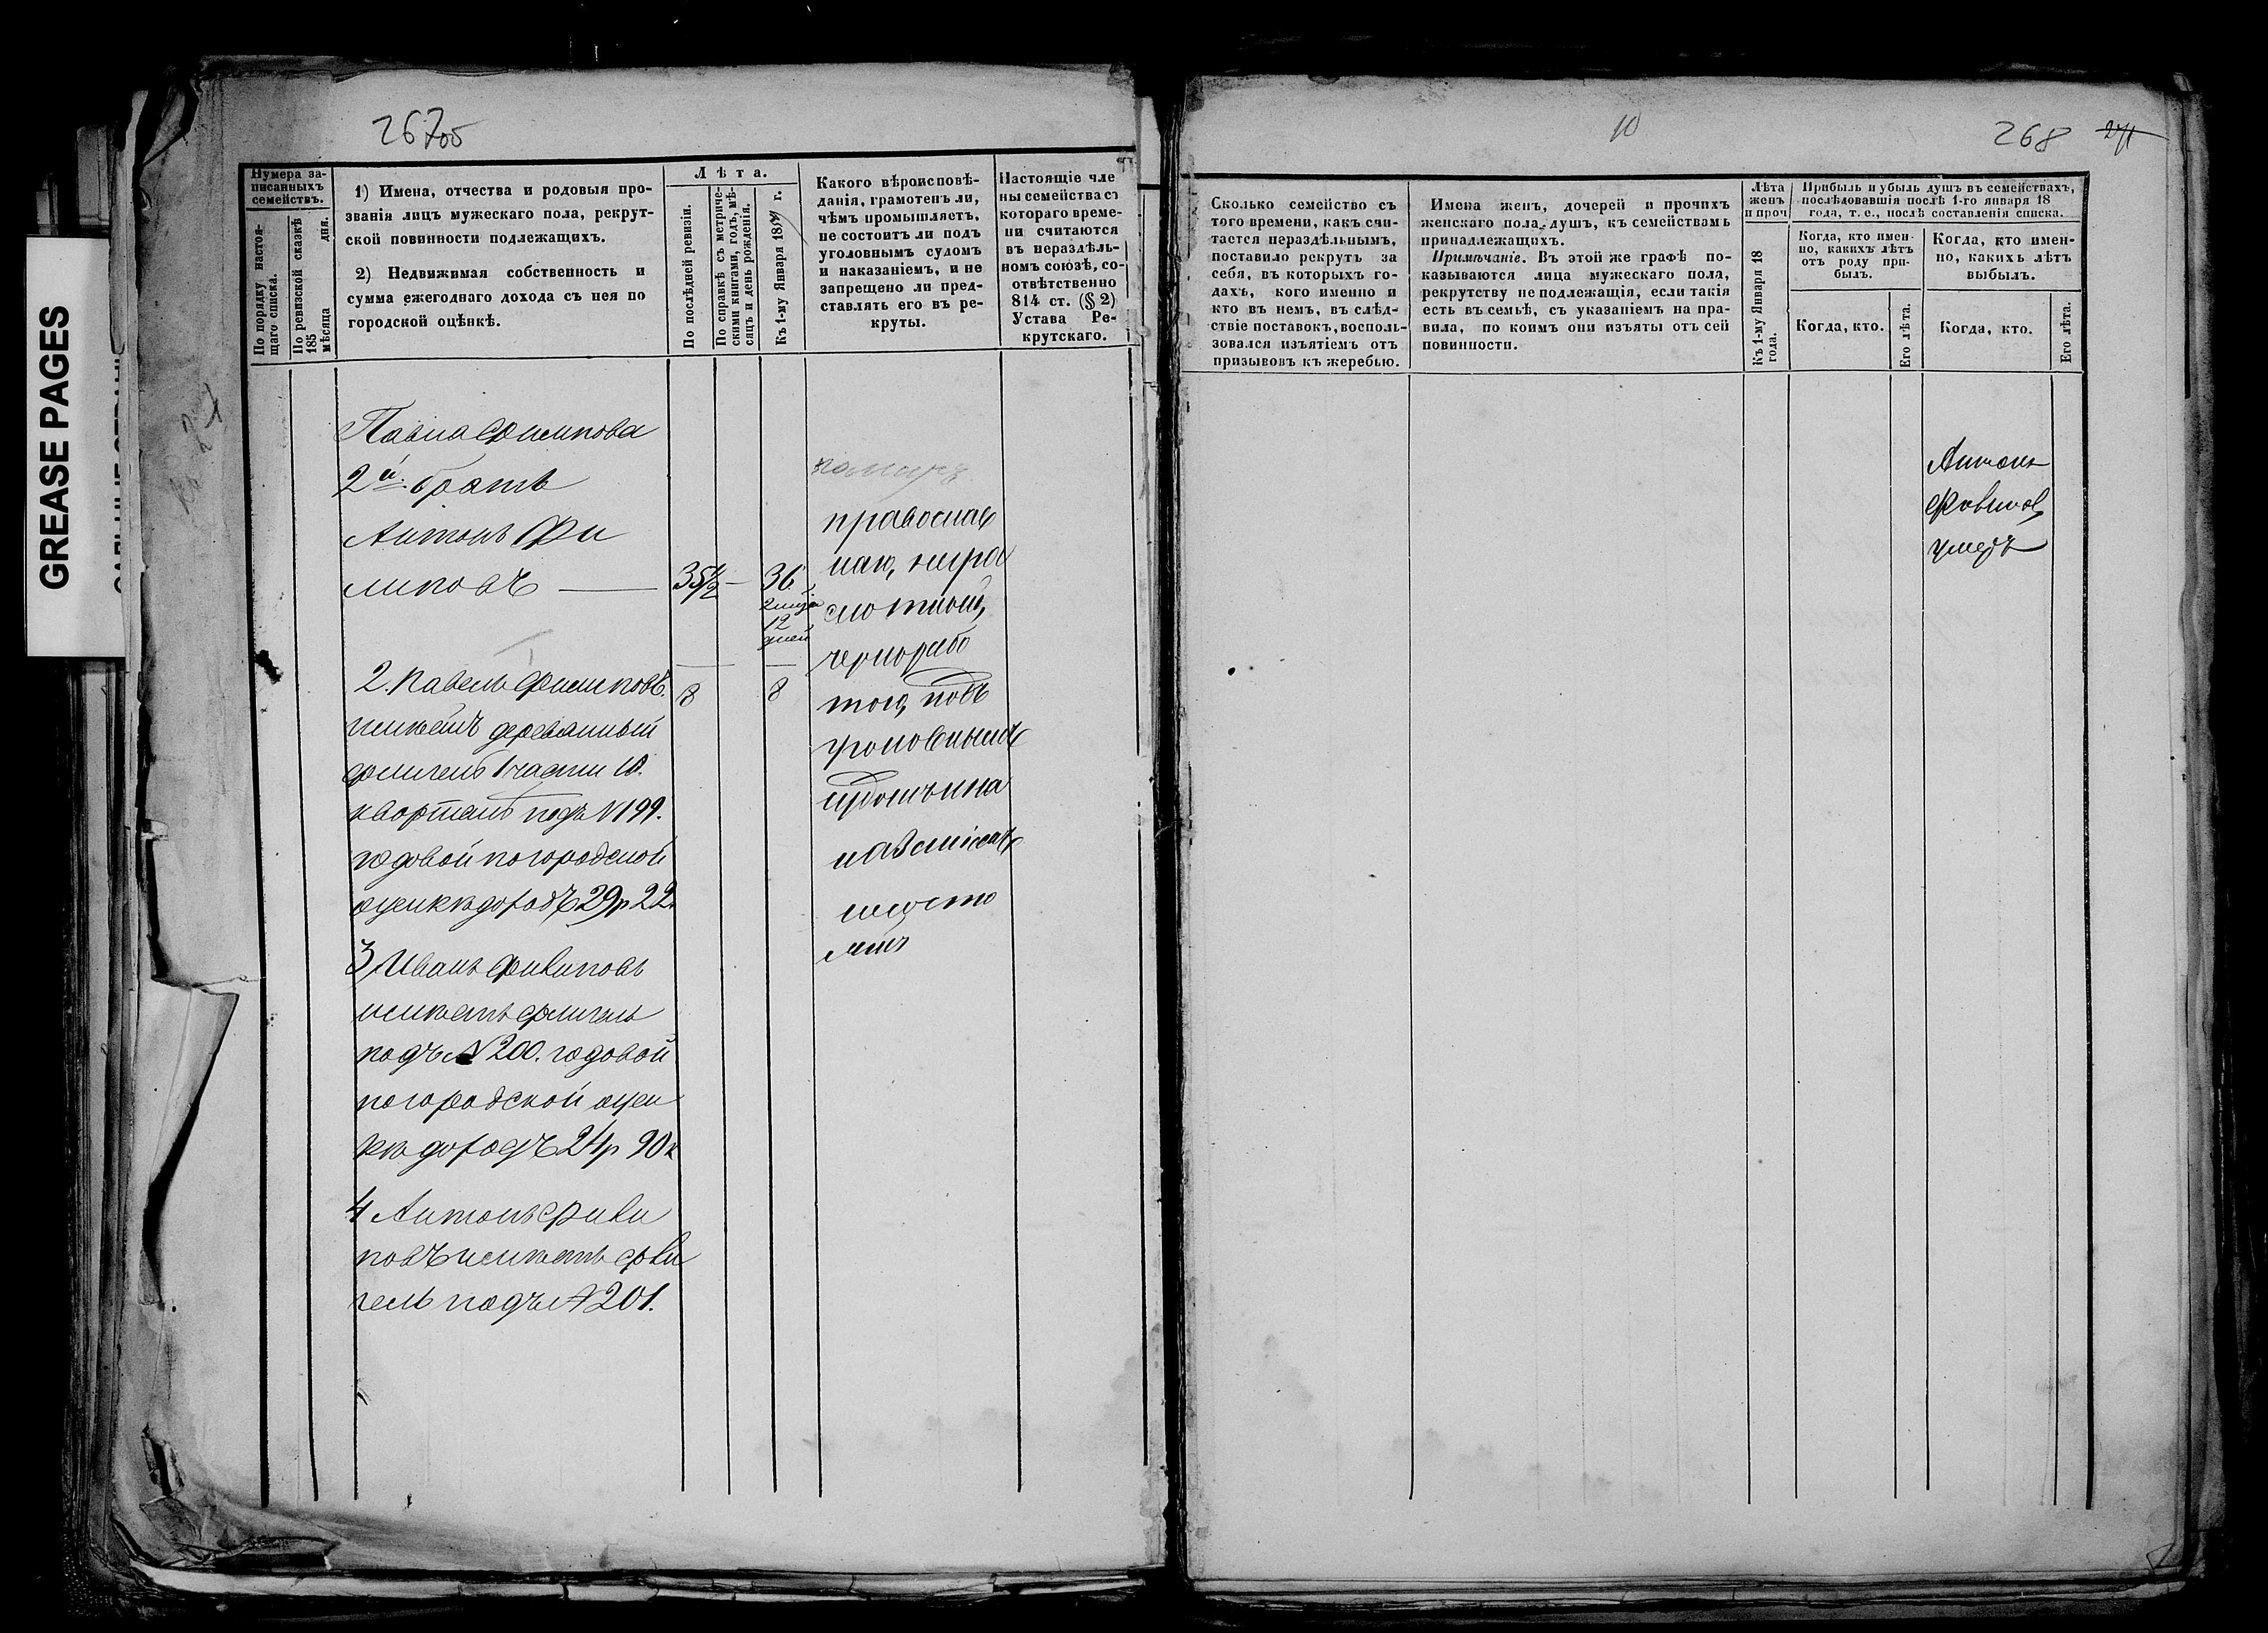 GREASE PAGES
267
10
268
271
Нумера за-
писанныхъ
семействъ.
По порядку настоя-
щаго списка.
По ревизской сказкѣ
185
мѣсяца дня.
1) Имена, отчества и родовыя про-
званія лицъ мужескаго пола, рекрут-
ской повинности подлежащихъ.
2) Недвижимая собственность и
сумма ежегоднаго дохода съ нея по
городской оцѣнкѣ.
Лѣта.
По послѣдней ревизіи.
По справкѣ съ метриче-
скими книгами, годъ, мѣ-
сяцъ и день рожденія.
Къ 1-му Января 18 г.
Какого вѣроисповѣ-
данія, грамотенъ ли,
чѣмъ промышляетъ,
не состоитъ ли подъ
уголовнымъ судомъ
и наказаніемъ, и не
запрещено ли пред-
ставлять его въ ре-
круты.
Настоящіе чле
ны семейства съ
котораго време-
ни считаются
въ нераздѣль-
номъ союзѣ, со-
отвѣтственно
814 ст. (§ 2)
Устава Ре-
крутскаго.
Павла Филипова
2й братъ
Антонъ Фи
липовъ — 35½ — 36
2 мѣся
12
дней
православ
наго, негра
мотный,
чернорабо
чій, подъ
уголовнымъ
судомъ и на
казаніемъ
несосто
итъ
2. Павелъ Филиповъ 8 8
имѣетъ деревянный
флигель 1 части 10.
квартала подъ N 199.
годовой по городской
оценкѣ доходъ 29р 22к
3 Иванъ Филиповъ
имѣетъ флигель
подъ N 200. годовой
по городской оцен
кѣ доходъ 24р 90к
4 Антонъ Фили
повъ имѣетъ фли
гель подъ N 201.
Сколько семейство съ
того времени, какъ счи-
тается нераздѣльнымъ,
поставило рекрутъ за
себя, въ которыхъ го-
дахъ, кого именно и
кто въ немъ, въ слѣд-
ствіе поставокъ, восполь-
зовался изъятіемъ отъ
призывовъ къ жеребью.
Имена женъ, дочерей и прочихъ
женскаго пола душъ, къ семействамъ
принадлежащихъ.
Примѣчаніе. Въ этой же графѣ по-
казываются лица мужескаго пола,
рекрутству неподлежащія, если такія
есть въ семьѣ, съ указаніемъ на пра-
вила, по коимъ они изъяты отъ сей
повинности.
Лѣта
женъ
и проч
Къ 1-му Января 18
года.
Прибыль и убыль душъ въ семействахъ,
послѣдовавшія послѣ 1-го января 18
года, т. е., послѣ составленія списка.
Когда, кто имен-
но, какихъ лѣтъ
отъ роду при-
былъ.
Когда, кто имен-
но, какихъ лѣтъ
выбылъ.
Когда, кто.
Его лѣта.
Когда, кто.
Его лѣта.
Антонъ
Филипов
умеръ